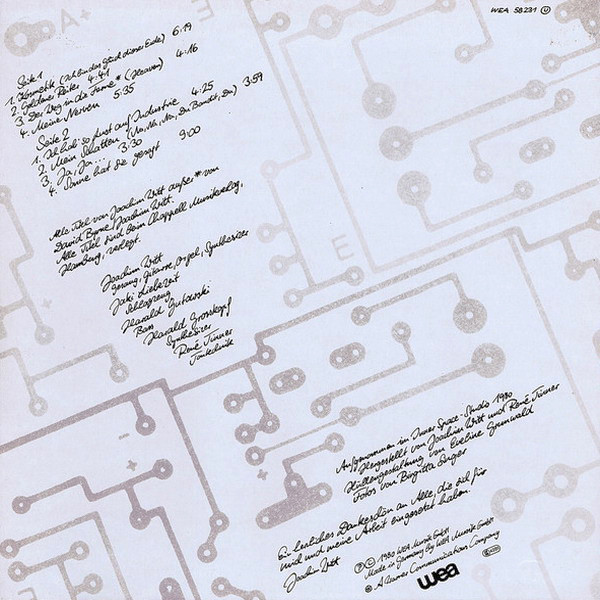 WEA 58231 U
Seite 1
1. Kosmetik (Ich bin das Glück dieser Erde) 6:19
2. Goldener Reiter 4:41
3. Der Weg in die Ferne* (Heaven) 4:16
4. Meine Nerven 5:35
Seite 2
1. Ich hab' so Lust auf Industrie 4:25
2. Mein Schatten (Na, Na, Na, Du Bandit, Du) 3:59
3. Ja, Ja... 3:30
4. Sonne hat sie gergt 9:00
Alle Titel von Joachim Witt außer * von
David Byrne/Joachim Witt.
Alle Titel sind beim Chappell Musikverlag,
Hamburg, verlegt.
Joachim Witt
Gesang, Gitarre, Orgel, Synthesizer
Jaki Liebezeit
Schlagzeug
Harald Gutowski
Bass
Harald Grosskopf
Synthesizer
René Tinner
Tontechnik
Aufgenommen im Inner Space-Studio 1980
Hergestellt von Joachim Witt und René Tinner
Hüllengestaltung von Eveline Grunwald
Fotos von Birgitta
Ein herzliches Dankeschön an Alle, die sich für
mich und meine Arbeit eingesetzt haben.
Joachim Witt
Ⓟ © 1980 WEA Musik GmbH
Made in Germany By WEA Musik GmbH
A Warner Communications Company
wea
A+
E
E
+
-
+
+